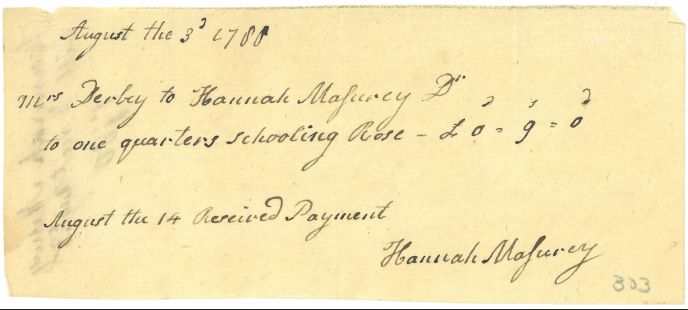 August the 3d 1788
Mrs Derby to Hannah Masurey Dr
to one quarters schooling Rose - £ 0 = 9 = 0
August the 14 Received Payment
Hannah Masurey
353